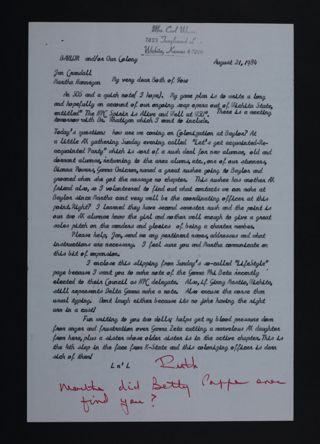 Mrs. Carl W
7855 Tanglewood
Wichita, Kansas 67206
BAYLOR and/or Our Colony
August 21, 1984
Jan Crandall
Martha
My very dear Both of You
An SOS and a quick note (I hope). My game plan is to write a long
and hopefully an account of our ongoing soap opera out of Wichita State,
entitled "The NPC Spirit is Alive and Well at KSU". There is a meeting
tomorrow with Dr. which I want to include.
Today's question: how are we coming on Colonization at Baylor? At
a little AX gathering Sunday evening called "Let's get acquainted-Re-
acquainted Party" which is sort of a rush deal for new alumnae, old and
dormant alumnae, interning to the area alums, etc., one of our stunners,
Dianna Powers, Gamma Omicron, named a great rushee going to Baylor and
groaned when she got the message no chapter. This rushee has another AX
friend also, so I volunteered to find out what contacts we can make at
Baylor since Martha most very well be the coordinating officer at this
point. Right? I learned they have second semester rush and the point is
our two AX alumnae know the girl and mother well enough to give a great
sales pitch on the wonders and glories of being a charter member.
Please help, Jan, send me any pertinent names, addresses and what
instructions are necessary. I feel sure you and Martha communicate on
this bit of expansion.
I enclose this clipping from Sunday's so-called "LifeStyle"
page because I want you to make note of the Gamma Phi Beta recently
elected to their Council as NPC delegate. Also, if Jinny Mantie, Wichita,
still represents Delta Gamma make a note. Also excuse the worse than
usual typing. Don't laugh either because it's no joke having the right
arm in a cast!
Fun writing to you dolls; helps get my blood pressure down
from anger and frustration over Gamma Zeta cutting a marvelous AX daughter
from here, plus a sister whose older sister is in the active chapter. This is
the 4th slap in the face from K-State and this colonizing officer is darn
sick of them!
L n' L
Ruth
Martha did Betty ever
find you?